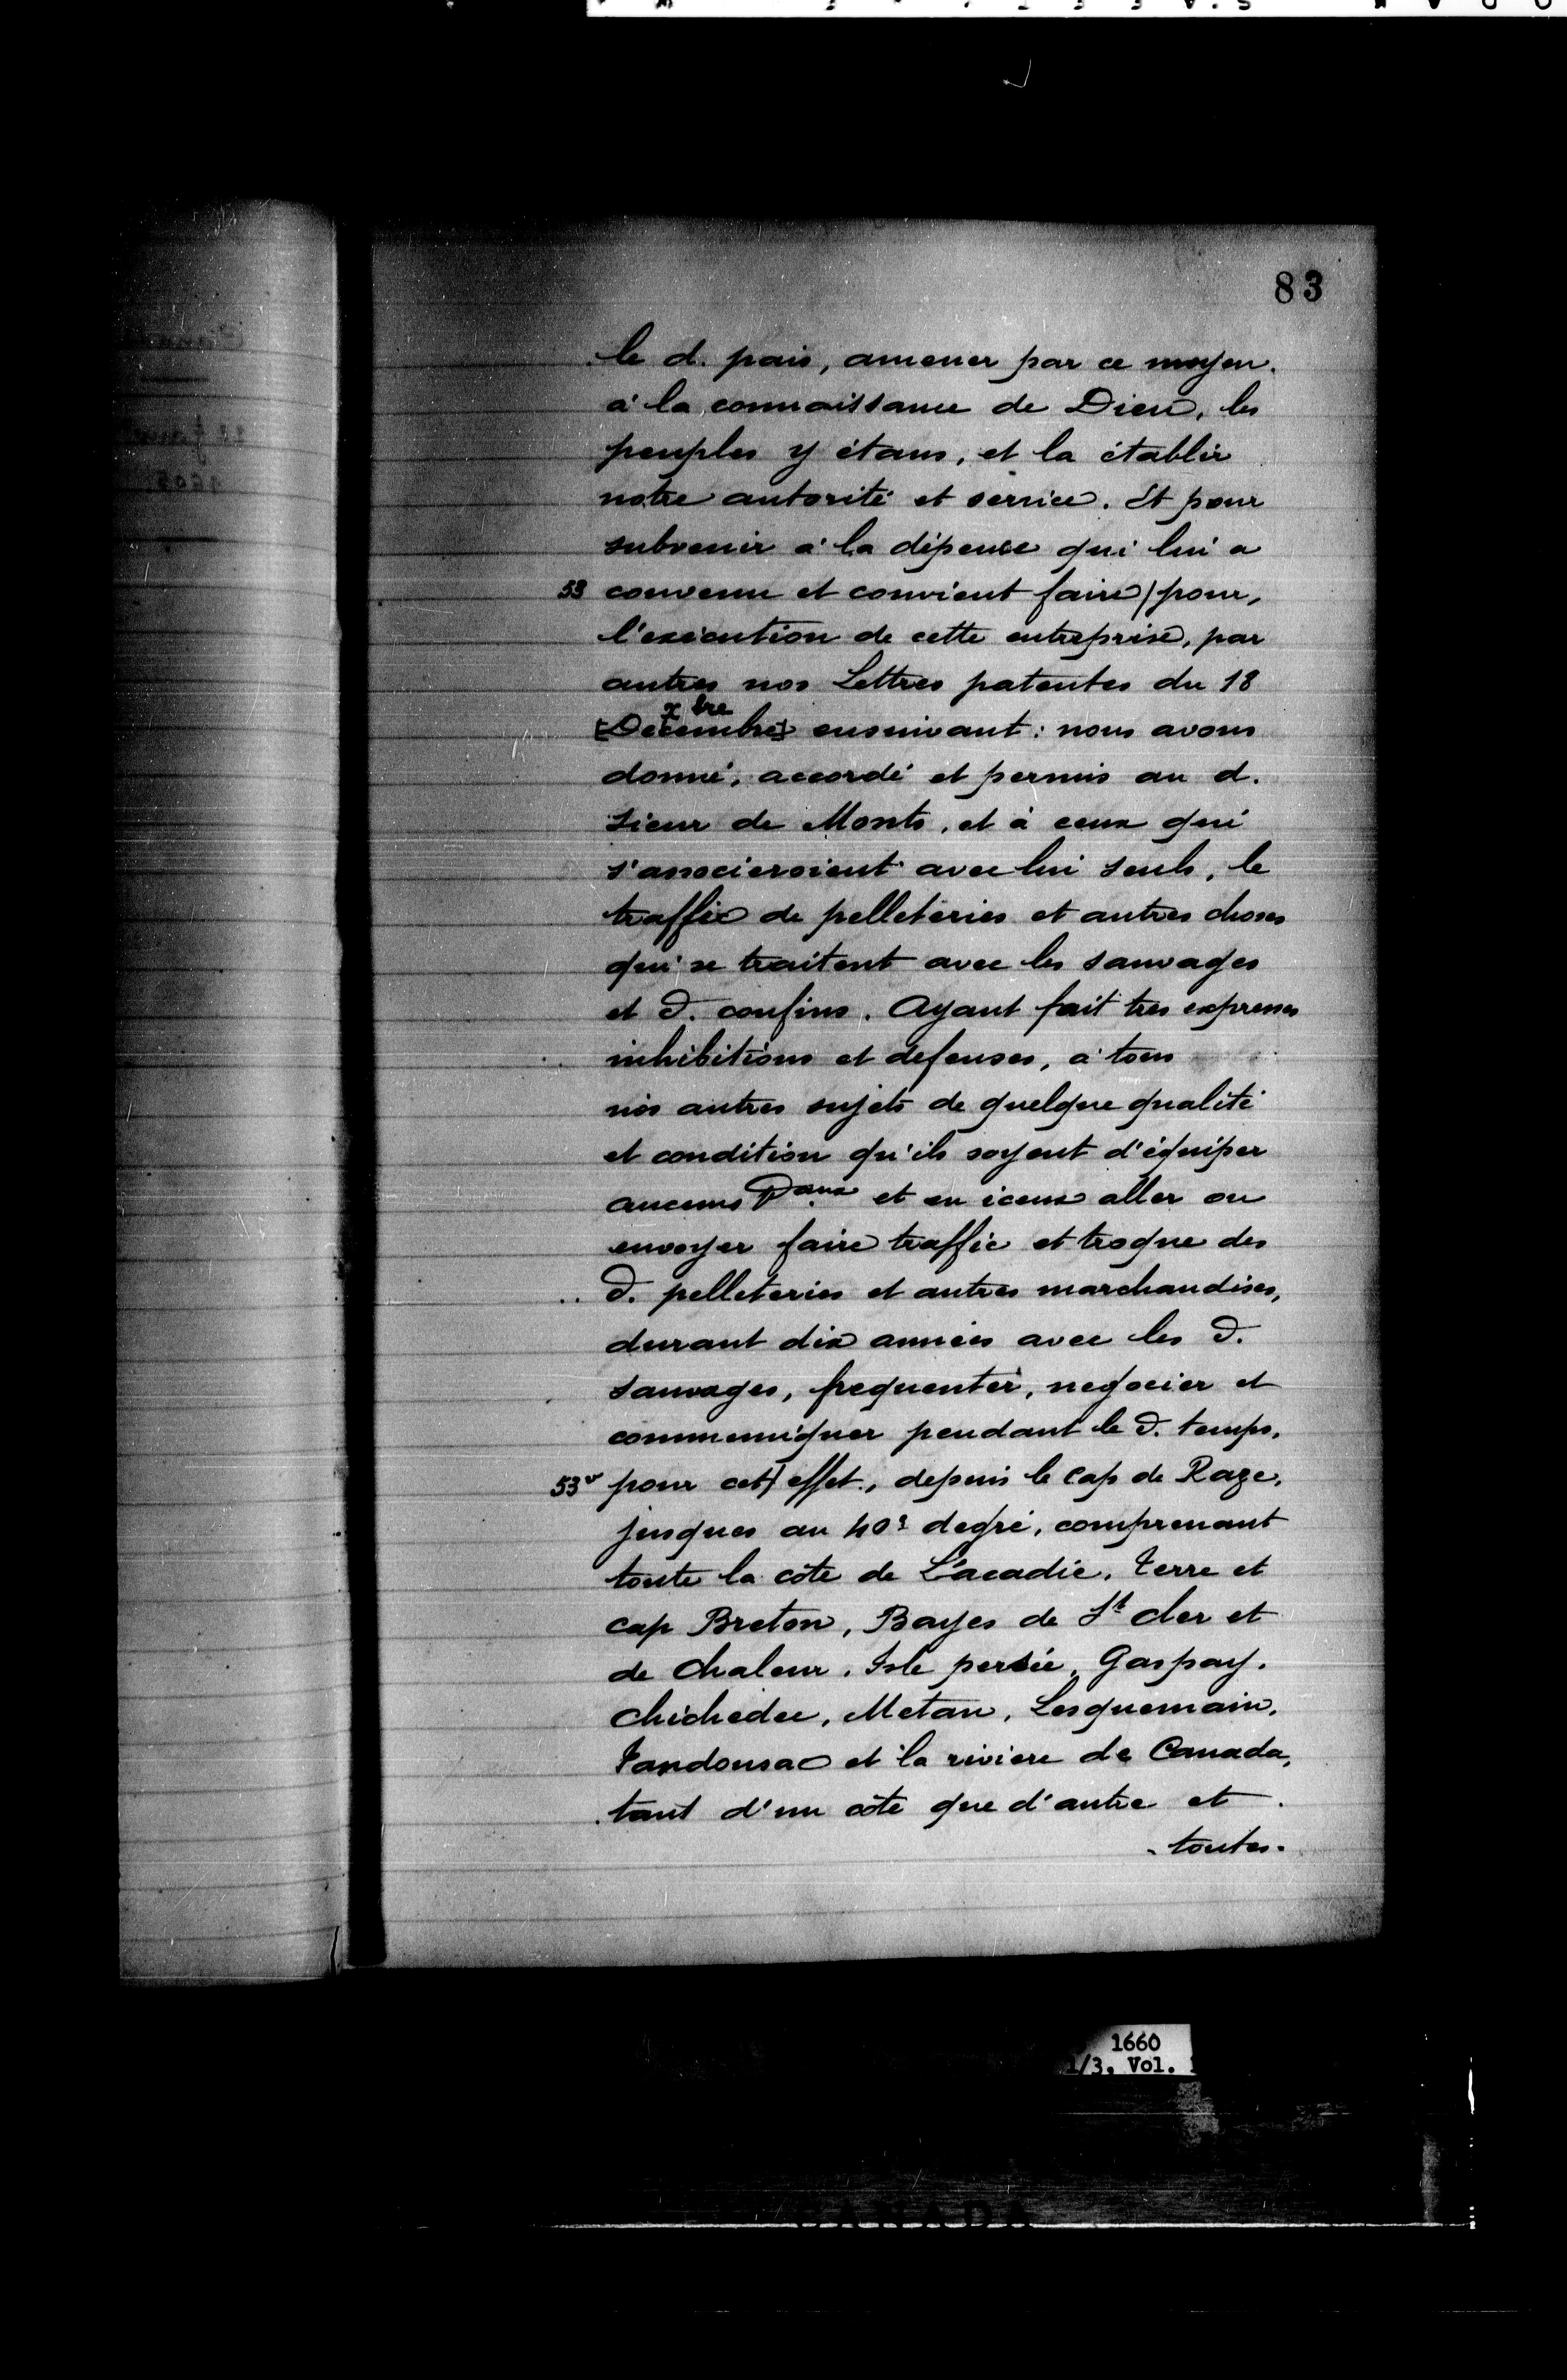 83
le d. pais, amener par ce moyen.
à la connaissance de Dieu, les
peuples y étans, et la établir
notre autorité et service. Et pour
subvenir à la dépense qui lui a
53 convenu et convient faire / pour,
l'exécution de cette entreprise, par
autres nos Lettres patentes du 18
x bre
[Decembre] ensuivant: nous avons
donné, accordé et permis au d.
Sieur de Monts, et à ceux qui
s'associeroient avec lui seuls, le
traffic de pelleteries et autres choses
qui se traitent avec les sauvages
et d. confins. Ayant fait tres expresses
inhibitions et defenses, à tous
nos autres sujets de quelque qualité
et condition qu'ils soyent d'équiper
aucuns et en iceux aller ou
envoyer faire traffic et troque des
d. pelleteries et autres marchandises,
durant dix années avec les d.
sauvages, frequenter, negocier et
communiquer pendant le d. temps,
53v pour cet / effet, depuis le Cap de Raze,
jusques au 40e degré, comprenant
toute la côte de L'acadie, terre et
cap Breton, Bayes de St cler et
de Chaleur, Isle persée, Gaspay,
chichedec, Metan, Lesquemain,
Tandousac et la riviere de Canada,
tant d'un côté que d'autre et
toutes.
1660
1/3, Vol.
CANADA